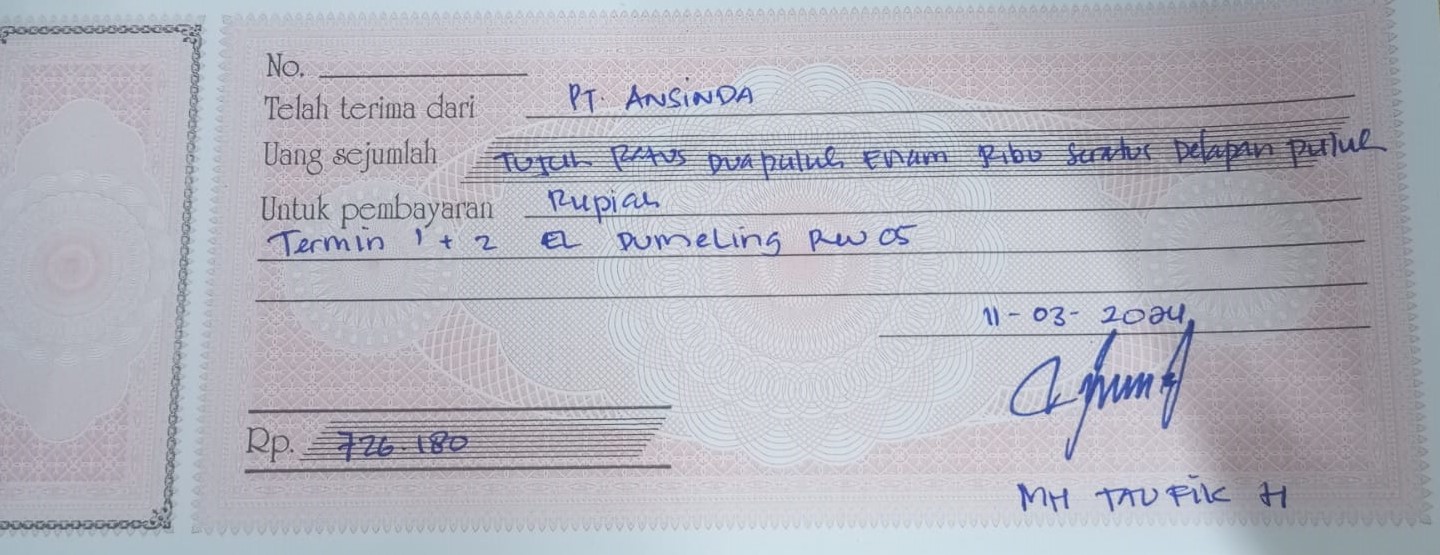 No.
Telah terima dari PT. ANSINDA
Uang sejumlah Tujuh Ratus Dua puluh Enam Ribu Seratus Delapan puluh
Untuk pembayaran Rupiah
Termin 1 + 2 EL Dumeling RW 05
11-03-2024
Rp. 726.180
MH TAUFIK H